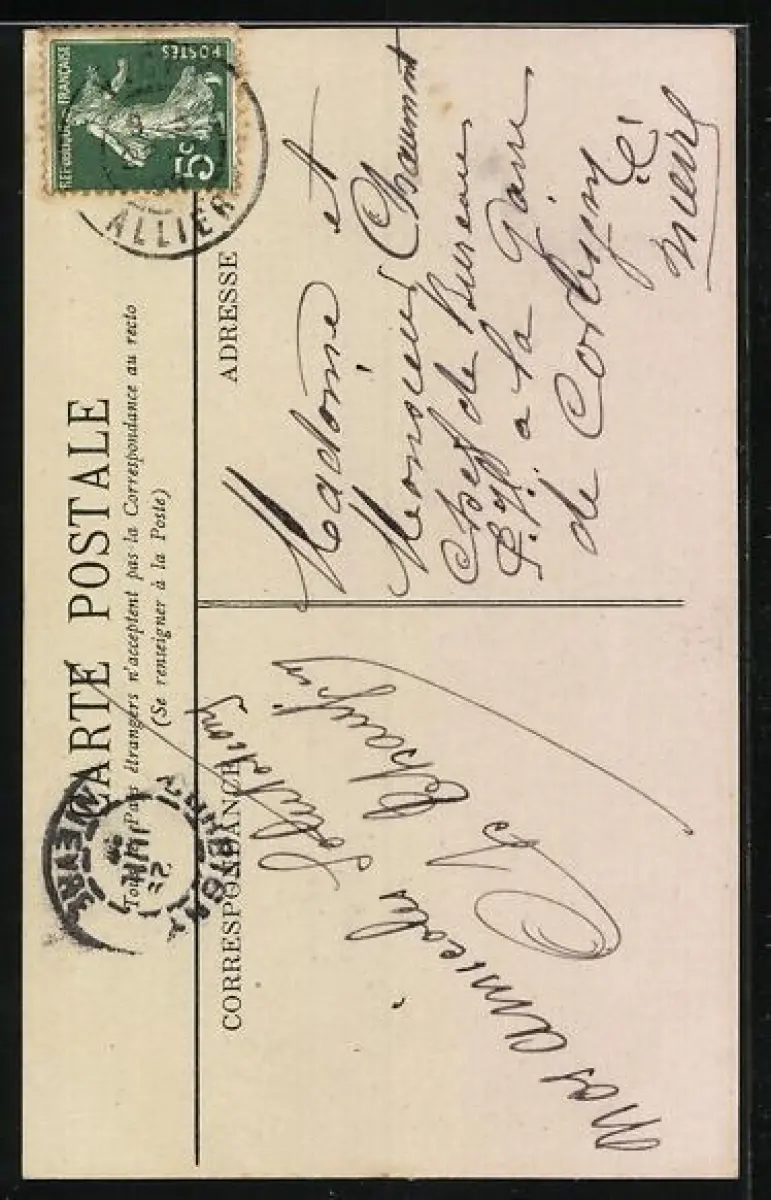 CARTE POSTALE
Tous les Pays étrangers n'acceptent pas la Correspondance au recto
(Se renseigner à la Poste)
CORRESPONDANCE
ADRESSE
REPUBLIQUE FRANÇAISE
POSTES
5c
ALLIER
NIEVRE
Nos amicales Salutations
Madame et
Monsieur Chaumont
Chef de Bureau
P.V. a la Gare
de Corbigny